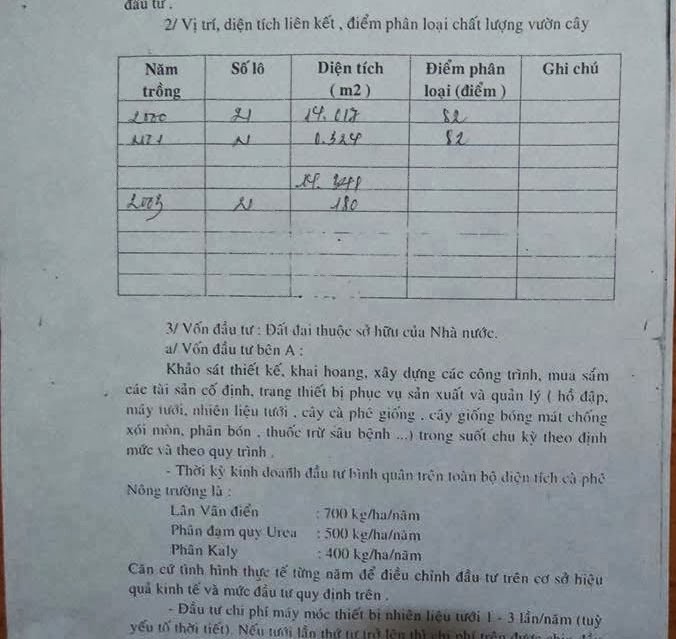 đầu tư .
2/ Vị trí, diện tích liên kết , điểm phân loại chất lượng vườn cây
Năm trồng Số lô Diện tích ( m2 ) Điểm phân loại (điểm ) Ghi chú
2000 21 14. 017 82
21 0.324 82
2003 21 180
3/ Vốn đầu tư : Đất đai thuộc sở hữu của Nhà nước.
a/ Vốn đầu tư bên A :
Khảo sát thiết kế, khai hoang, xây dựng các công trình, mua sắm
các tài sản cố định, trang thiết bị phục vụ sản xuất và quản lý ( hồ đập,
máy tưới, nhiên liệu tưới , cây cà phê giống , cây giống bóng mát chống
xói mòn, phân bón , thuốc trừ sâu bệnh ...) trong suốt chu kỳ theo định
mức và theo quy trình .
- Thời kỳ kinh doanh đầu tư bình quân trên toàn bộ diện tích cà phê
Nông trường là :
Lân Văn điển : 700 kg/ha/năm
Phân đạm quy Urea : 500 kg/ha/năm
Phân Kaly : 400 kg/ha/năm
Căn cứ tình hình thực tế từng năm để điều chỉnh đầu tư trên cơ sở hiệu
quả kinh tế và mức đầu tư quy định trên .
- Đầu tư chi phí máy móc thiết bị nhiên liệu tưới 1 - 3 lần/năm (tuỳ
yếu tố thời tiết). Nếu tưới lần thứ tư trở lên thì chi phí trên được